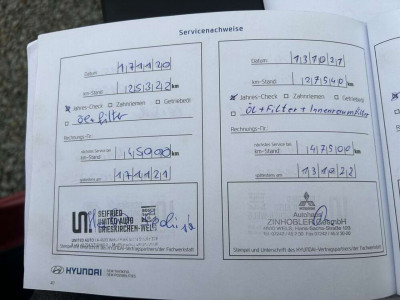 Servicenachweise
Datum:
171120
km-Stand:
125322 km
Jahres-Check
Zahnriemen
Getriebeöl
Öl + Filter
Rechnungs-Nr.:
nächster Service bei
km-Stand:
145000 km
spätestens am:
171121
SEIFRIED
UNITED AUTO
GRIESKIRCHEN-WELS
Stempel und Unterschrift des HYUNDAI-Vertragspartners/der Fachwerkstatt
Datum:
131021
km-Stand:
127540 km
Jahres-Check
Zahnriemen
Getriebeöl
Öl + Filter + Innenraumfilter
Rechnungs-Nr.:
nächster Service bei
km-Stand:
147500 km
spätestens am:
131022
MITSUBISHI
Autohaus
ZINHOBLER GmbH
Stempel und Unterschrift des HYUNDAI-Vertragspartners/der Fachwerkstatt
HYUNDAI